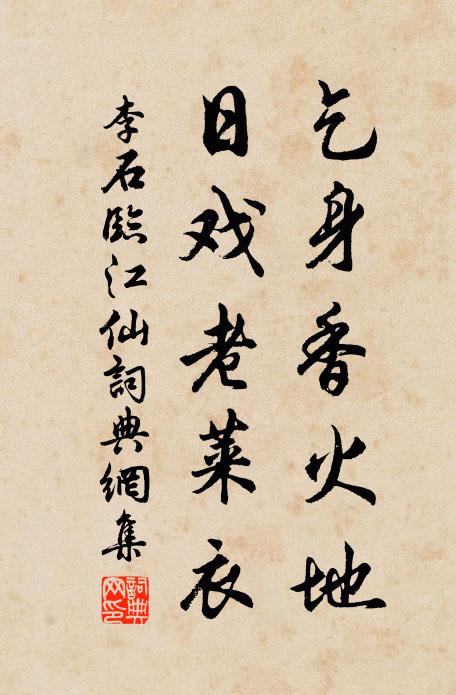 乞身香火地
日戏老莱衣
李石臨江仙詞典網集
詞典
网印